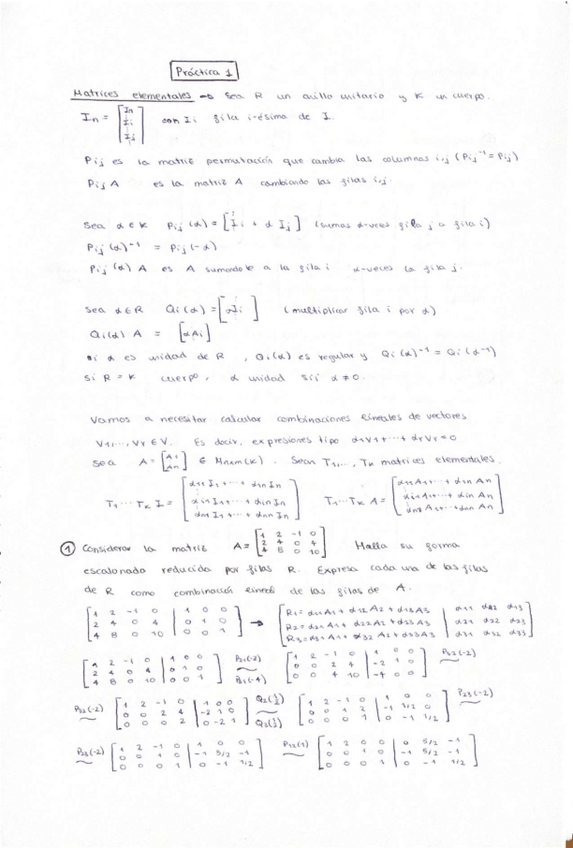 Práctica 1
Matrices elementales → Sea R un anillo unitario y K un cuerpo.
In = [In Ii Ij] con Ii fila i-ésima de I.
Pij es la matriz permutación que cambia las columnas i,j (Pij⁻¹ = Pij)
Pij A es la matriz A cambiando las filas i,j.
Sea α ∈ K Pij (α) = [Ii + α Ij] (sumas α-veces fila j a fila i)
Pij (α)⁻¹ = Pij (-α)
Pij (α) A es A sumandole a la fila i α-veces la fila j.
Sea α ∈ R Qi (α) = [αIi] (multiplicar fila i por α)
Qi(α) A = [αAi]
si α es unidad de R, Qi(α) es regular y Qi (α)⁻¹ = Qi (α⁻¹)
Si R = K cuerpo, α unidad sii α ≠ 0.
Vamos a necesitar calcular combinaciones lineales de vectores
V1,..., Vr ∈ V. Es decir, expresiones tipo α1V1 + ... + αrVr = 0
Sea A = [A1 An] ∈ Mnxm(K). Sean T1,..., Tk matrices elementales.
T1 ... Tk I = [α11 I1 + ... + α1n In αi1 I1 + ... + αin In αn1 I1 + ... + αnn In] T1 ... Tk A = [α11 A1 + ... + α1n An αi1 A1 + ... + αin An αn1 A1 + ... + αnn An]
① Considerar la matriz A = [1 2 -1 0 2 4 0 4 4 8 0 10] Halla su forma
escalonada reducida por filas R. Expresa cada una de las filas
de R como combinación lineal de las filas de A.
[1 2 -1 0 | 1 0 0 2 4 0 4 | 0 1 0 4 8 0 10 | 0 0 1] → [R1 = α11 A1 + α12 A2 + α13 A3 | α11 α12 α13 R2 = α21 A1 + α22 A2 + α23 A3 | α21 α22 α23 R3 = α31 A1 + α32 A2 + α33 A3 | α31 α32 α33]
[1 2 -1 0 | 1 0 0 2 4 0 4 | 0 1 0 4 8 0 10 | 0 0 1] P21(-2) P31(-4) [1 2 -1 0 | 1 0 0 0 0 2 4 | -2 1 0 0 0 4 10 | -4 0 0] P32(-2)
P32(-2) [1 2 -1 0 | 1 0 0 0 0 2 4 | -2 1 0 0 0 0 2 | 0 -2 1] Q2(1/2) Q3(1/2) [1 2 -1 0 | 1 0 0 0 0 1 2 | -1 1/2 0 0 0 0 1 | 0 -1 1/2] P23(-2)
P23(-2) [1 2 -1 0 | 1 0 0 0 0 1 0 | -1 5/2 -1 0 0 0 1 | 0 -1 1/2] P12(1) [1 2 0 0 | 0 5/2 -1 0 0 1 0 | -1 5/2 -1 0 0 0 1 | 0 -1 1/2]